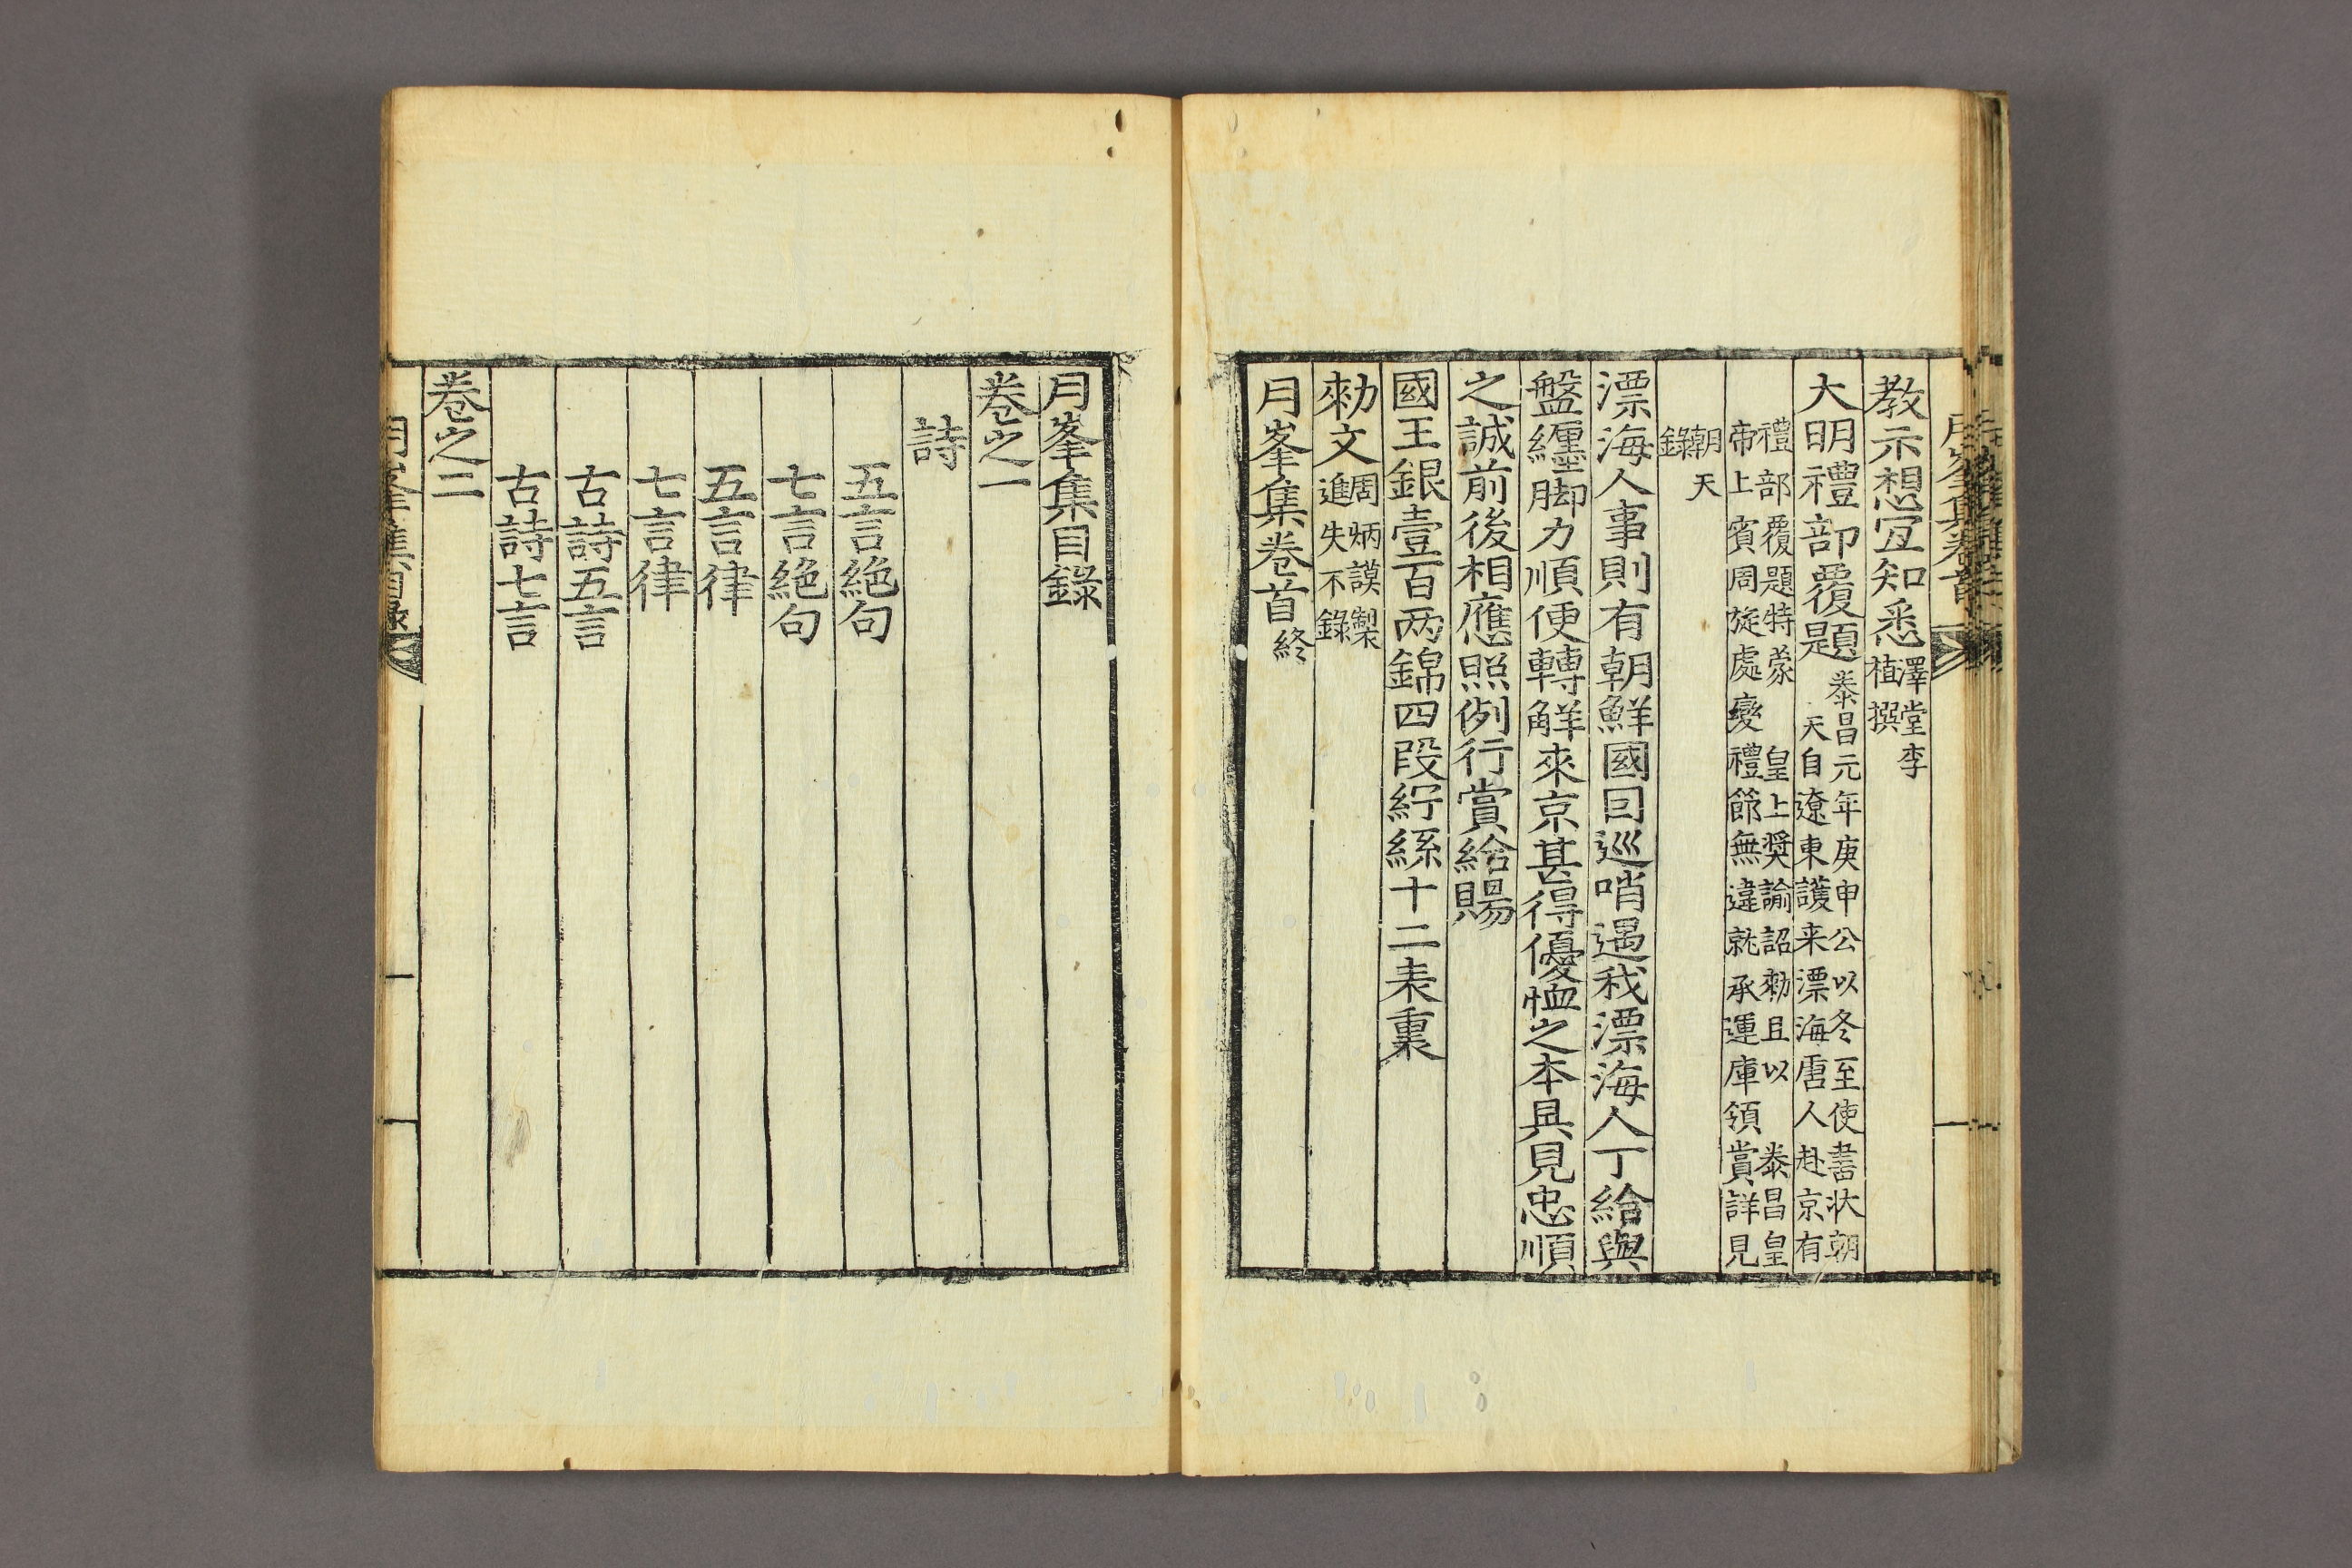 教示想宜知悉澤堂李植撰
大明禮部覆題泰昌元年庚申公以冬至使書狀朝
天自遼東護来漂海唐人赴京有
禮部覆題特蒙 皇上奬諭詔勑且以 泰昌皇
帝上賓周旋處變禮節無違就承運庫領賞詳見
朝天
錄
漂海人事則有朝鮮國回巡哨遇我漂海人丁給與
盤纒脚力順便轉觧來京甚得優恤之本具見忠順
之誠前後相應照例行賞給賜
國王銀壹百两錦四段紵絲十二表裏
勑文周炳謨製
進失不錄
月峯集卷首終
月峯集目錄
卷之一
詩
五言絶句
七言絶句
五言律
七言律
古詩五言
古詩七言
卷之二
月峯集目錄
一